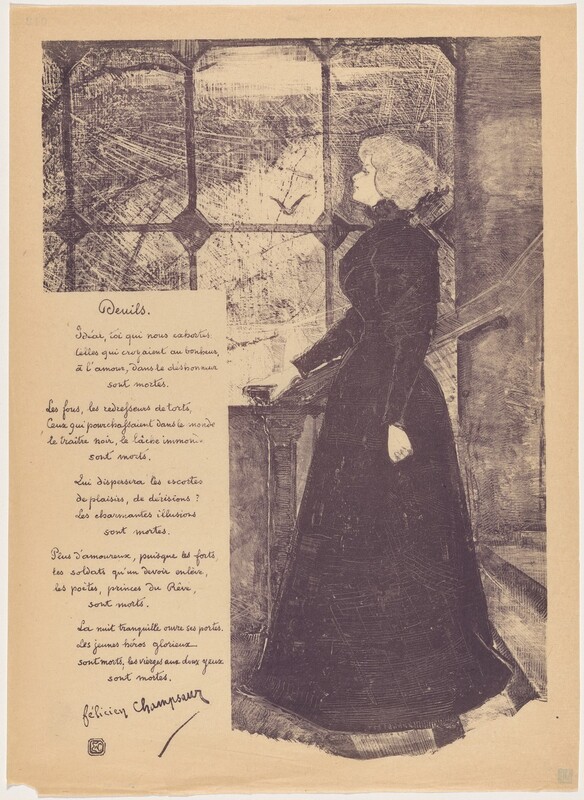 Deuils.
Idéal, toi qui nous exhortes,
telles qui croyaient au bonheur,
à l'amour, dans le déshonneur
sont mortes.
Les fous, les redresseurs de torts,
Ceux qui pourchassaient dans le monde
le traître noir, le lâche immonde
sont morts.
Qui dispersera les escortes
de plaisirs, de dérisions ?
Les charmantes illusions
sont mortes.
Plus d'amoureux, puisque les forts,
les soldats qu'un devoir enlève,
les poètes, princes du Rêve,
sont morts.
La nuit tranquille ouvre ses portes.
Les jeunes héros glorieux
sont morts, les vierges aux doux yeux
sont mortes.
félicien Champsaur